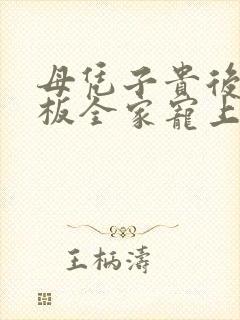 母凭子貴後
板全家寵上
王柄濤